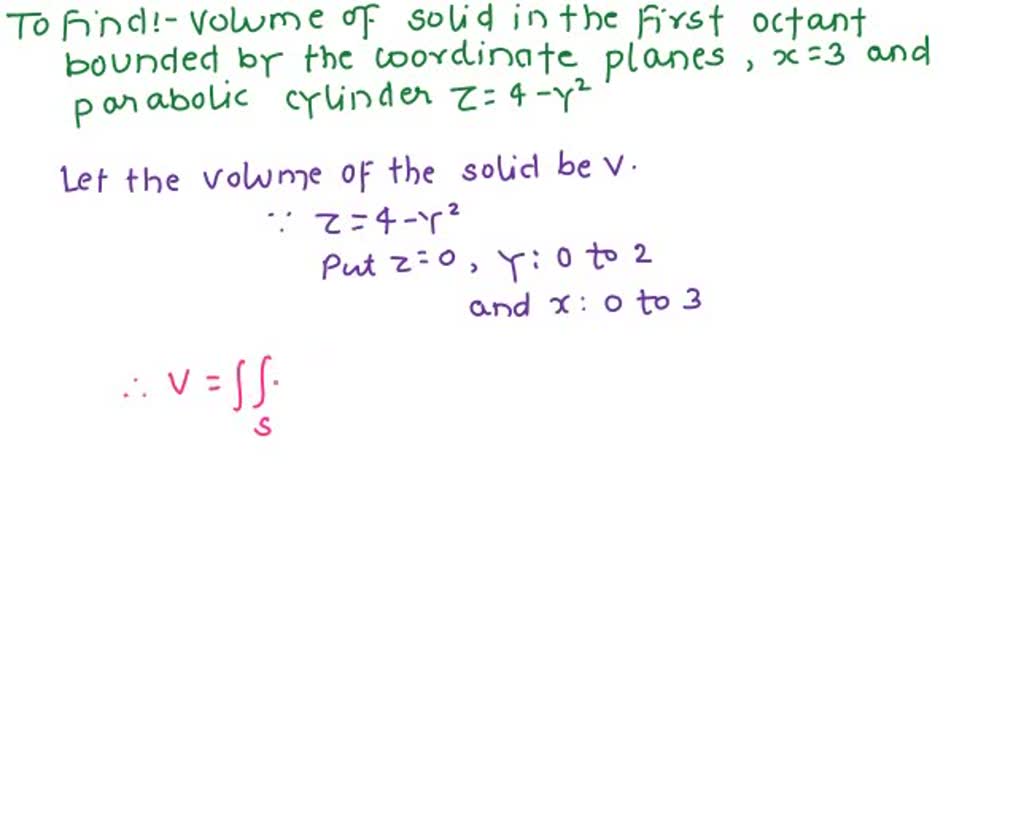 To Find!- Volume of solid in the First octant
bounded by the coordinate planes, x=3 and
parabolic cylinder z=4-y²
Let the volume of the solid be V.
∵ z=4-y²
Put z=0, y: 0 to 2
and x: 0 to 3
∴ V = ∫∫
S